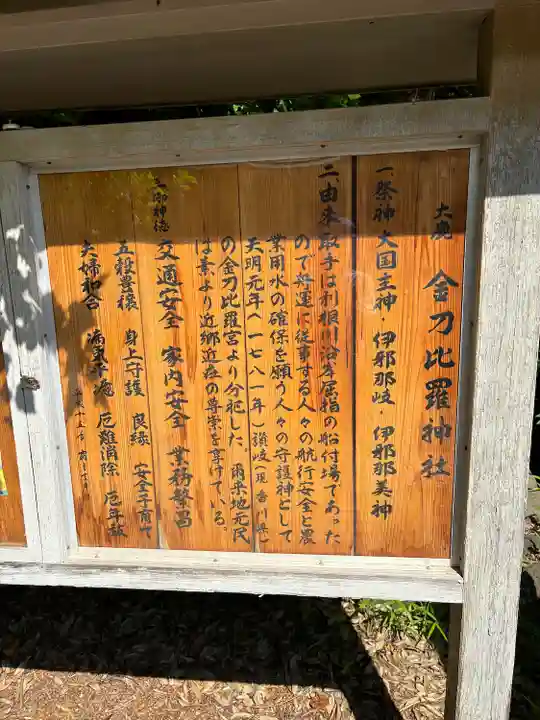 大鹿 金刀比羅神社
一祭神 大国主神・伊邪那岐・伊邪那美神
二由来 取手は利根川沿岸屈指の船付場であった
ので舟運に従事する人々の航行安全と農
業用水の確保を願う人々の守護神として
天明元年(一七八一年)讃岐(現香川県)
の金刀比羅宮より分祀した。爾来地元民
は素より近郷近在の尊崇を享けている。
三御神徳
交通安全 家内安全 業務繁昌
五穀豊穣 身上守護 良縁 安全子育て
夫婦和合 満氣平癒 厄難消除 厄年祓